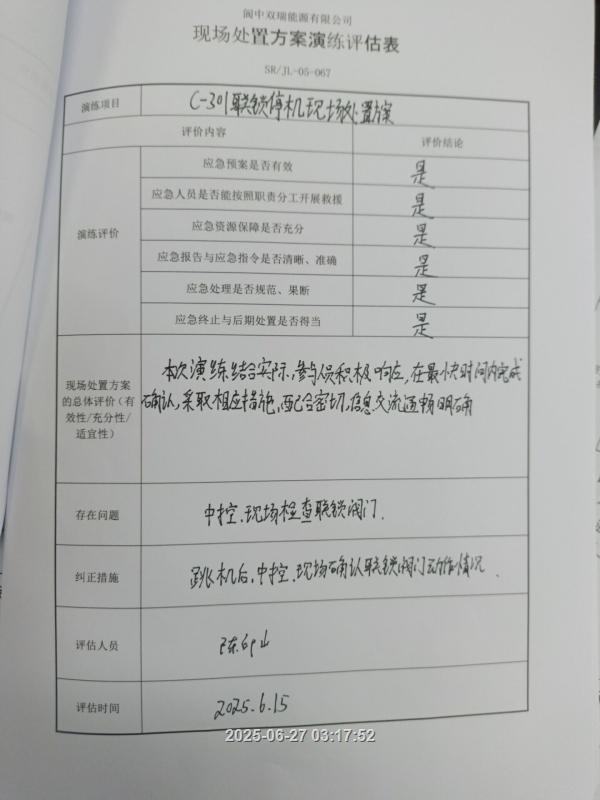 阆中双瑞能源有限公司
现场处置方案演练评估表
SR/JL-05-067
演练项目 C-301联锁停机现场处置方案
评价内容 评价结论
演练评价
应急预案是否有效 是
应急人员是否能按照职责分工开展救援 是
应急资源保障是否充分 是
应急报告与应急指令是否清晰、准确 是
应急处理是否规范、果断 是
应急终止与后期处置是否得当 是
现场处置方案
的总体评价（有
效性/充分性/
适宜性）
本次演练结合实际,参与人员积极响应,在最快时间内完成
确认,采取相应措施,配合密切,信息交流通畅明确
存在问题 中控、现场检查联锁阀门.
纠正措施 跳机后,中控、现场确认联锁阀门动作情况.
评估人员 陈
评估时间 2025.6.15
2025-06-27 03:17:52